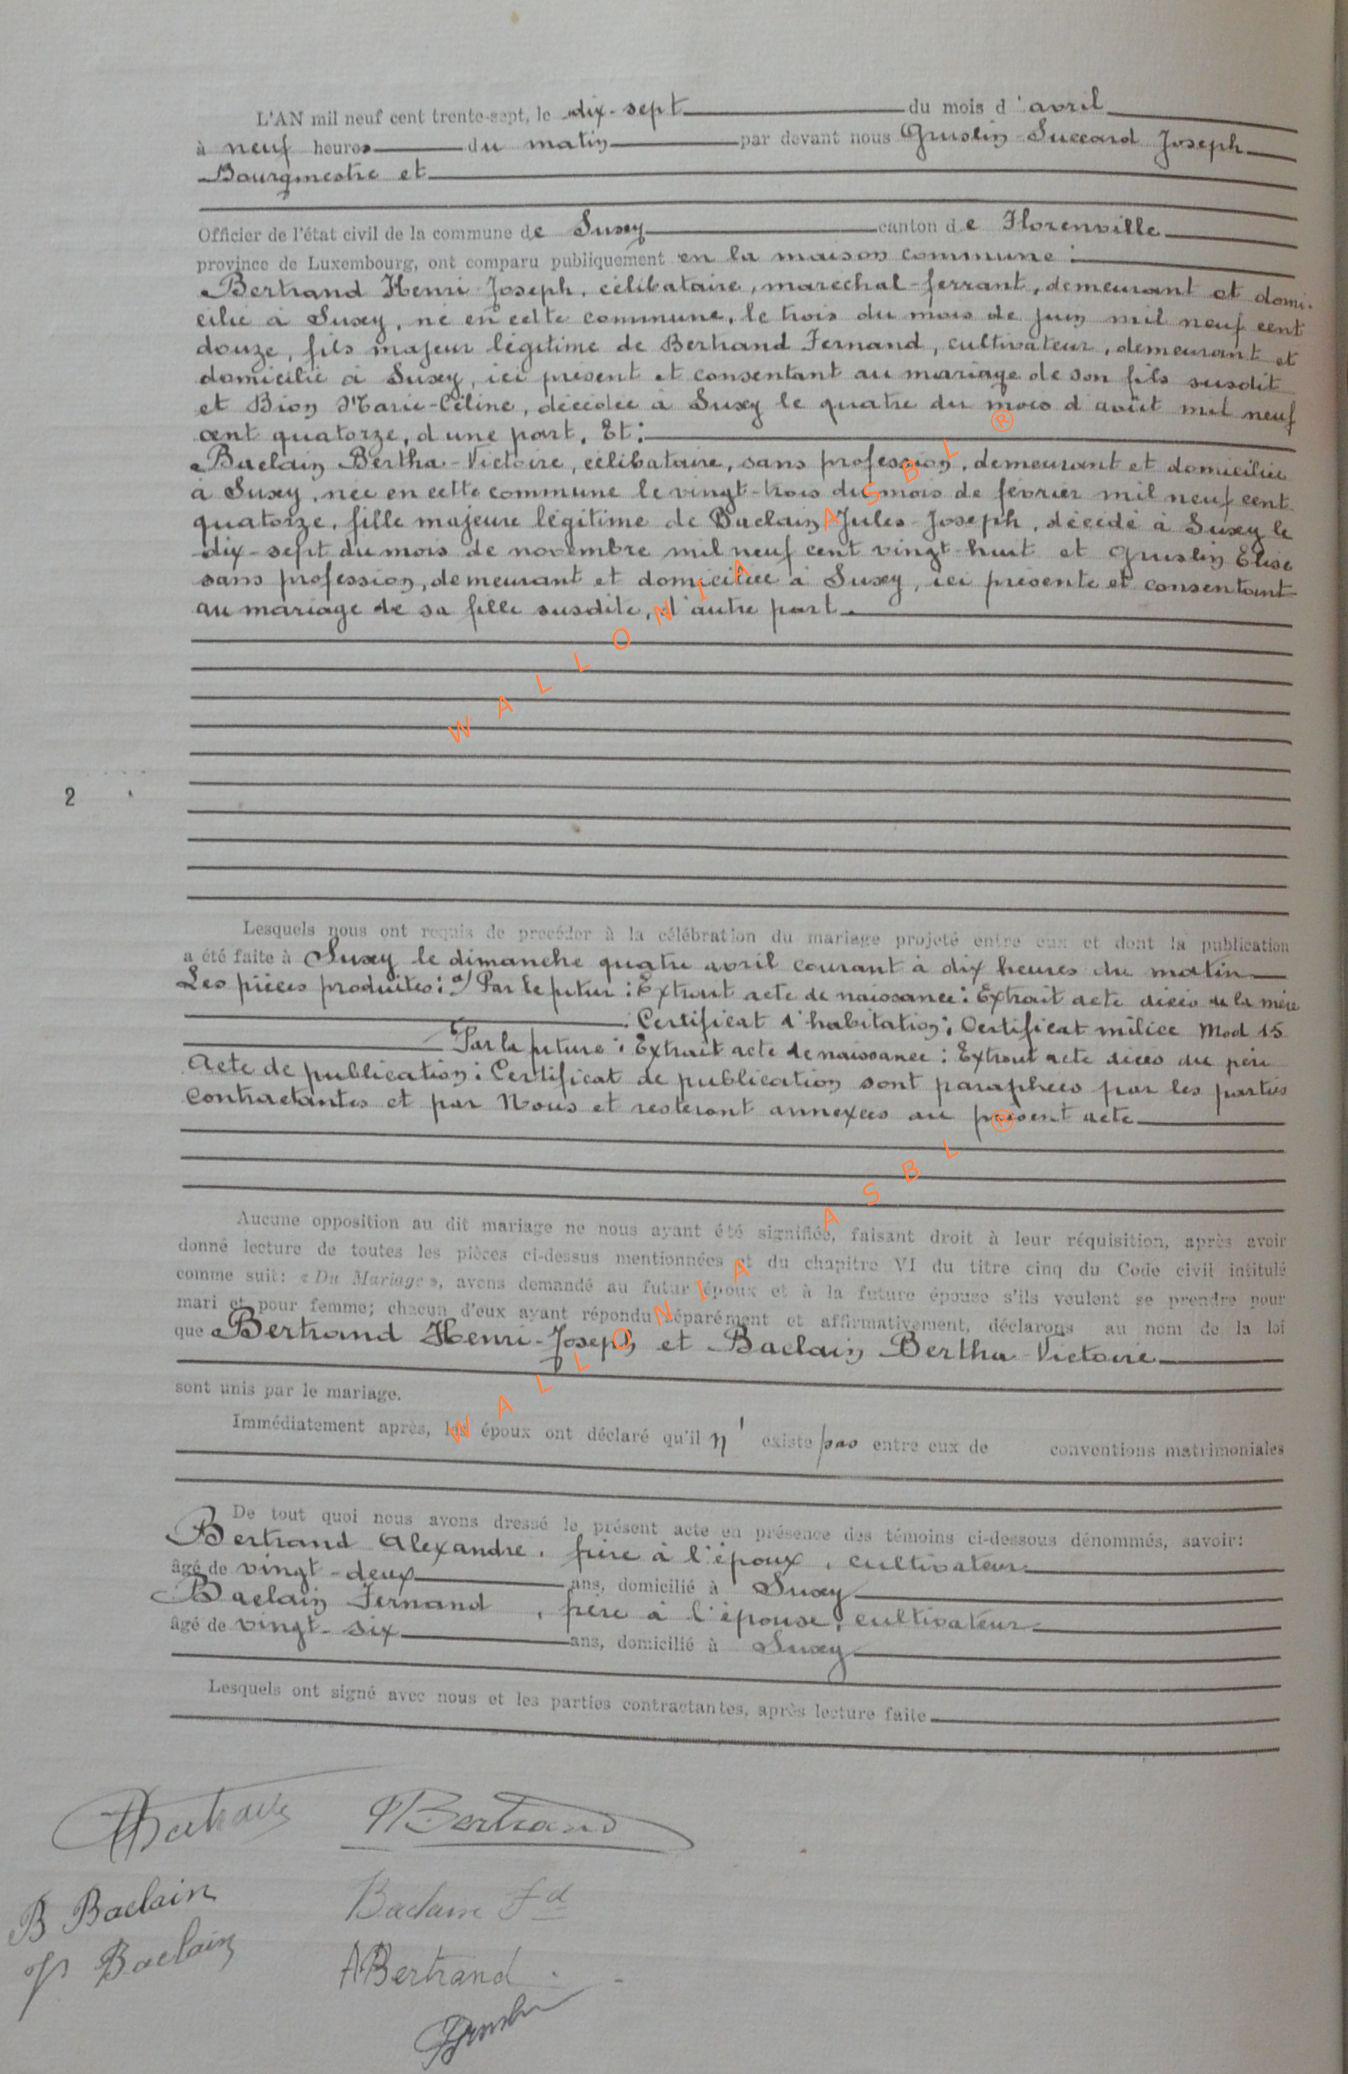 L'AN mil neuf cent trente-sept, le dix-sept du mois d'avril
à neuf heures du matin par devant nous Gruslin-Succard Joseph
Bourgmestre et
Officier de l'état civil de la commune de Suxy canton de Florenville
province de Luxembourg, ont comparu publiquement en la maison commune :
Bertrand Henri-Joseph, célibataire, maréchal-ferrant, demeurant et domi-
cilié à Suxy, né en cette commune, le trois du mois de juin mil neuf cent
douze, fils majeur légitime de Bertrand Fernand, cultivateur, demeurant et
domicilié à Suxy, ici présent et consentant au mariage de son fils susdit
et Bion Marie-Céline, décédée à Suxy le quatre du mois d'août mil neuf
cent quatorze, d'une part, Et :
Baclain Bertha-Victoire, célibataire, sans profession, demeurant et domiciliée
à Suxy, née en cette commune le vingt-trois du mois de février mil neuf cent
quatorze, fille majeure légitime de Baclain Jules-Joseph, décédé à Suxy le
dix-sept du mois de novembre mil neuf cent vingt-huit et Gruslin Elise
sans profession, demeurant et domiciliée à Suxy, ici présente et consentant
au mariage de sa fille susdite, d'autre part.
WALLONIA ASBL ®
2
Lesquels nous ont requis de procéder à la célébration du mariage projeté entre eux et dont la publication
a été faite à Suxy le dimanche quatre avril courant à dix heures du matin
Les pièces produites : a/ Par le futur : Extrait acte de naissance : Extrait acte décès de la mère
: Certificat d'habitation ; Certificat milice Mod 15
Par la future : Extrait acte de naissance : Extrait acte décès du père
Acte de publication : Certificat de publication sont paraphées par les parties
contractantes et par Nous et resteront annexées au présent acte
Aucune opposition au dit mariage ne nous ayant été signifiée, faisant droit à leur réquisition, après avoir
donné lecture de toutes les pièces ci-dessus mentionnées et du chapitre VI du titre cinq du Code civil intitulé
comme suit : « Du Mariage », avons demandé au futur époux et à la future épouse s'ils veulent se prendre pour
mari et pour femme; chacun d'eux ayant répondu séparément et affirmativement, déclarons au nom de la loi
que Bertrand Henri-Joseph et Baclain Bertha-Victoire
WALLONIA ASBL ®
sont unis par le mariage.
Immédiatement après, les époux ont déclaré qu'il n' existe pas entre eux de conventions matrimoniales
De tout quoi nous avons dressé le présent acte en présence des témoins ci-dessous dénommés, savoir :
Bertrand Alexandre, frère à l'époux, cultivateur
âgé de vingt-deux ans, domicilié à Suxy
Baclain Fernand, frère à l'épouse, cultivateur
âgé de vingt-six ans, domicilié à Suxy
Lesquels ont signé avec nous et les parties contractantes, après lecture faite
Bertrand
Bertrand
B Baclain
Baclain Fd
Baclain
A Bertrand
Gruslin